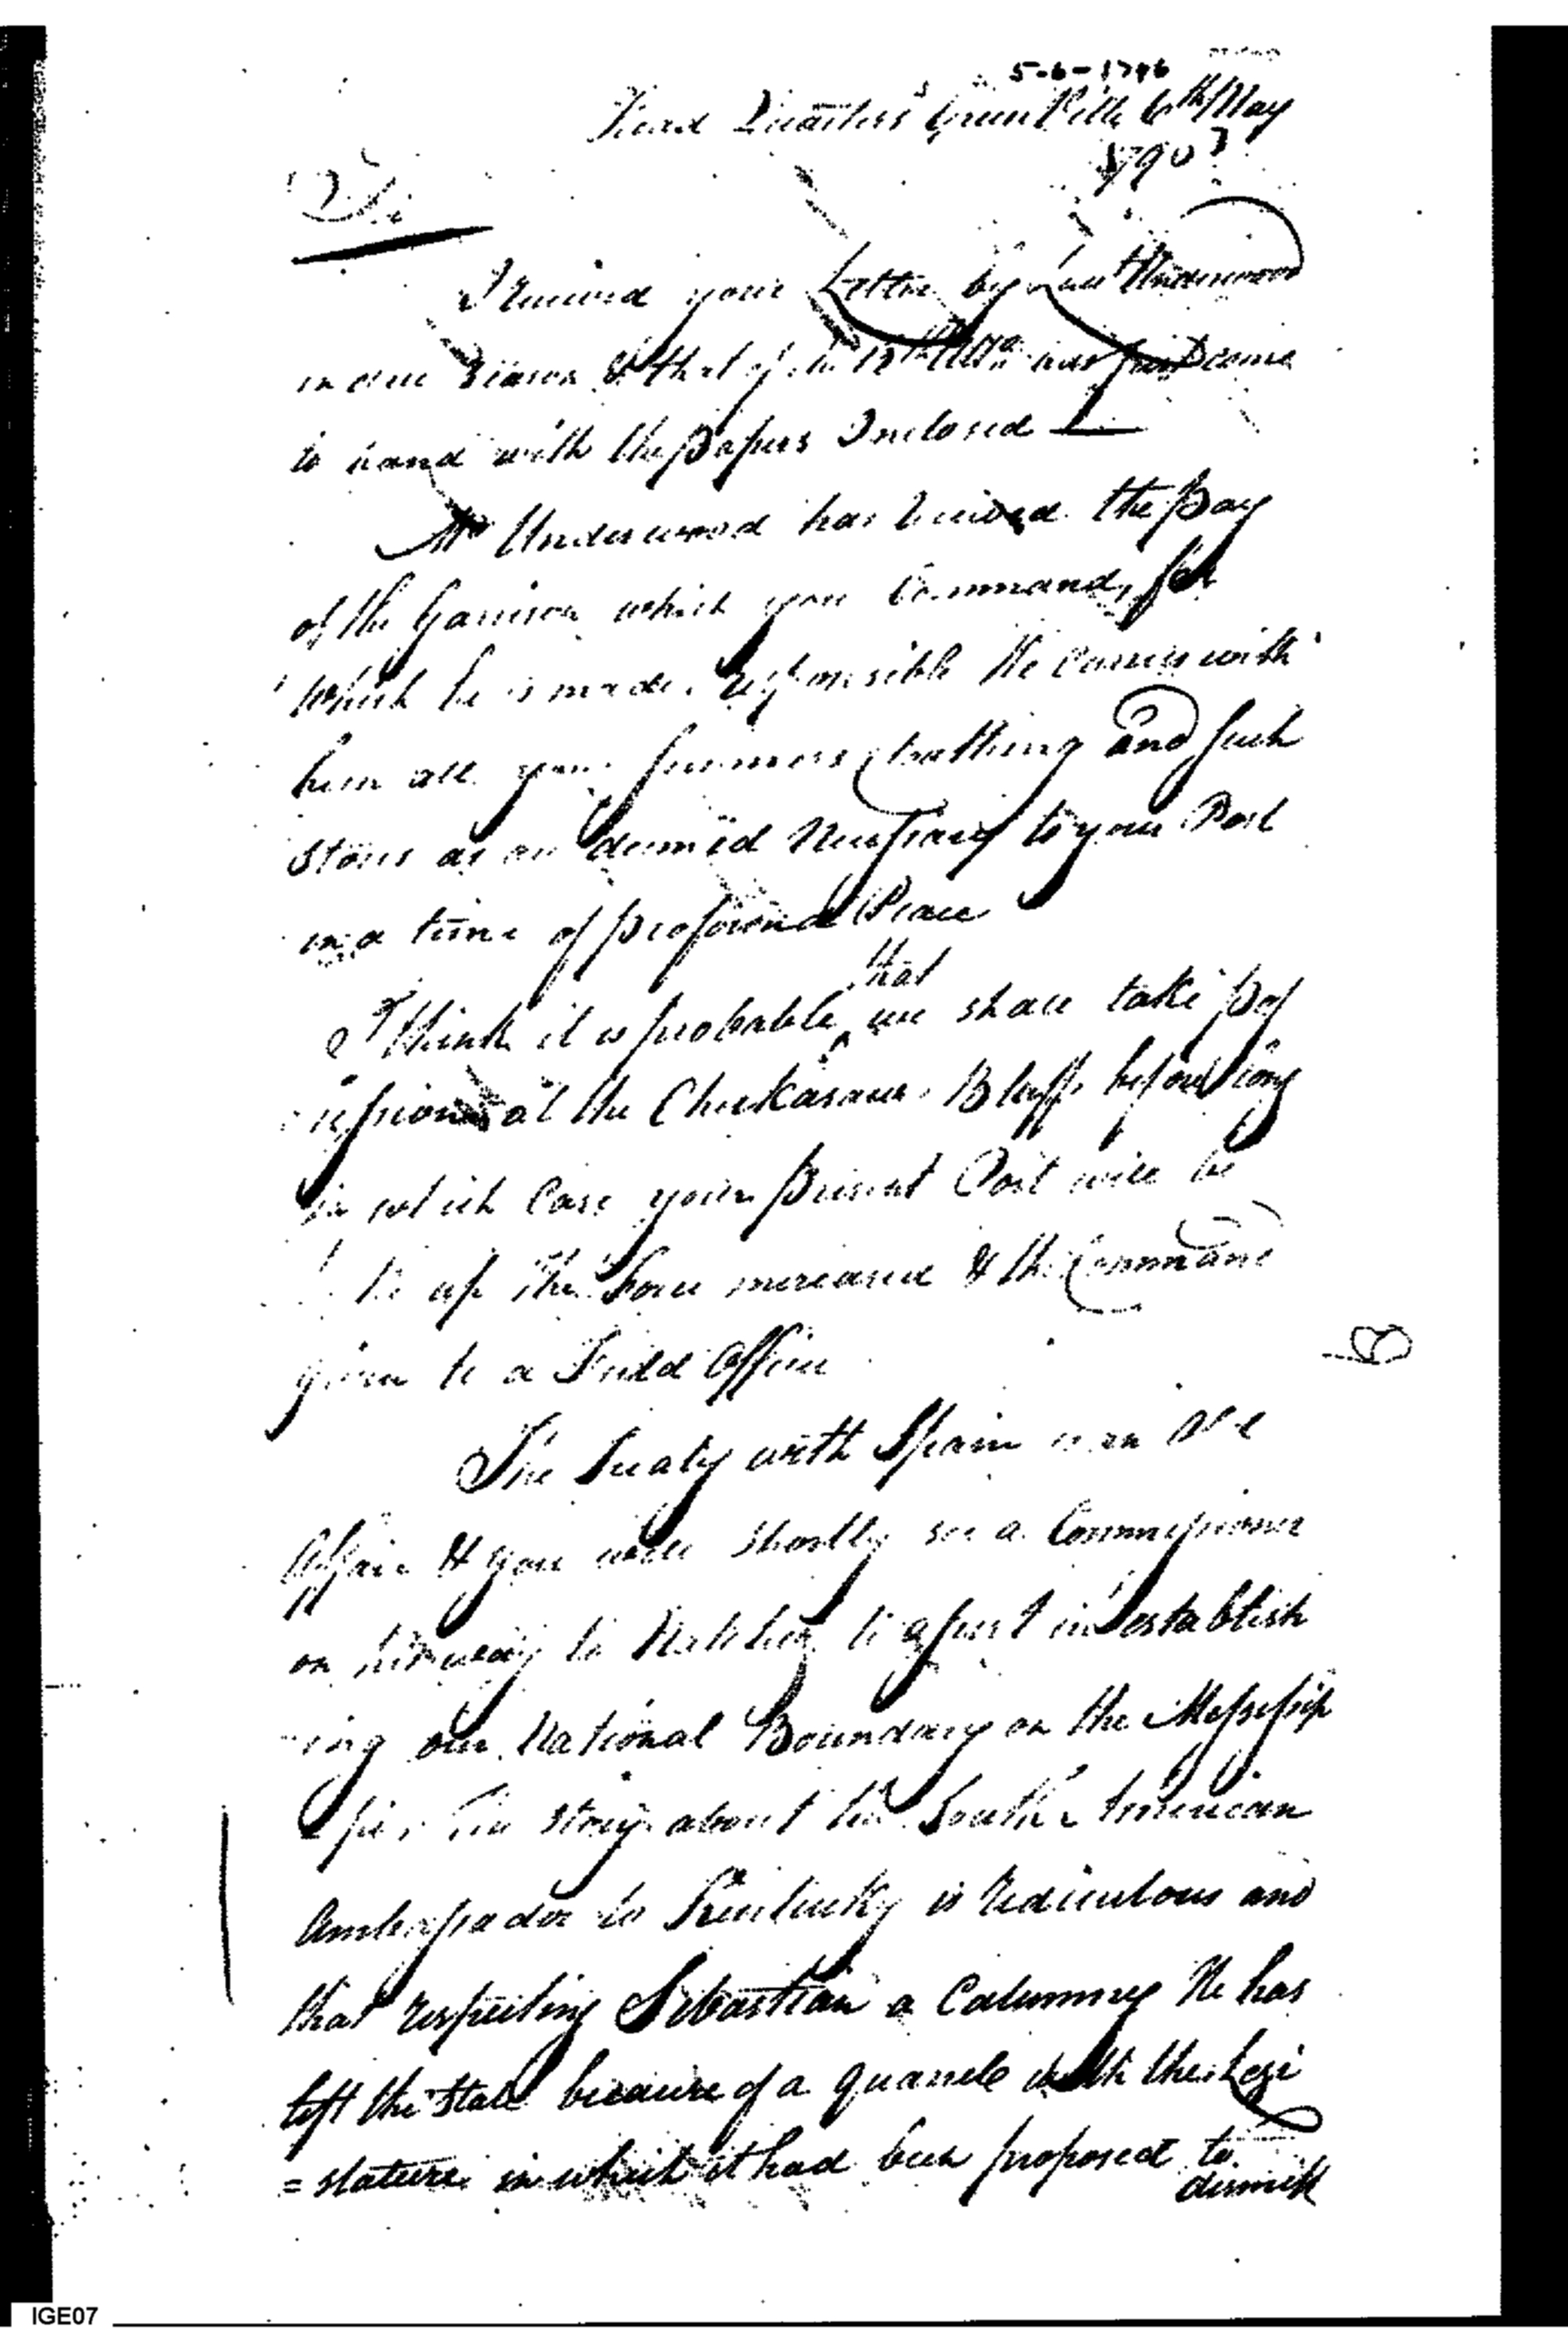 5-6-1796
Head Quarters Green Ville 6th May
1796
Sir
I received your Letter by Lieut Underwood
in due season & that of the 12th Ulto. has just come
to hand with the papers Inclosed
Mr Underwood has received the pay
of the Garrison which you Command, for
which he is made responsible He carries with
him all your summers cloathing and such
stores as are deemed Necessary to your Post
in a time of profound Peace
I think it is probable that we shall take pos
session at the Chickasaws Bluffs before long
in which case your present Post will be
up the Force increased & the Command
given to a Field Officer
The Treaty with Spain is an
Affair & you will shortly see a Commissioner
on his way to Natchez to assist in establish
-ing our National Boundary on the Messissip
-pi, The story about the South American
Ambassador to Kentucky is rediculous and
that respecting Sebastian a Calumny He has
left the state because of a quarrele with the Legi
=slature in which it had been proposed to
dismiss
IGE07